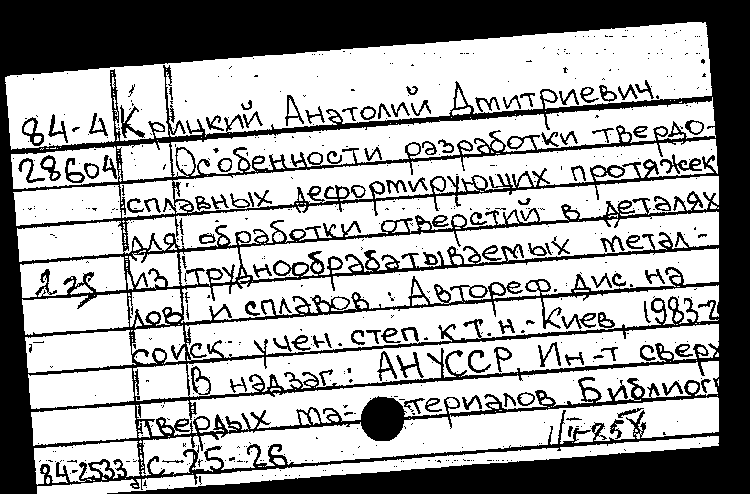 84-4 Крицкий, Анатолий Дмитриевич.
28604 Особенности разработки твердо-
сплавных деформирующих протяжек
для обработки отверстий в деталях
из труднообрабатываемых метал-
лов и сплавов : Автореф. дис. на
соиск. учен. степ. к.т.н. - Киев, 1983-2
В надзаг.: АН УССР, Ин-т сверх
твердых ма- териалов. Библиогр
84-2533 с. 25-26.